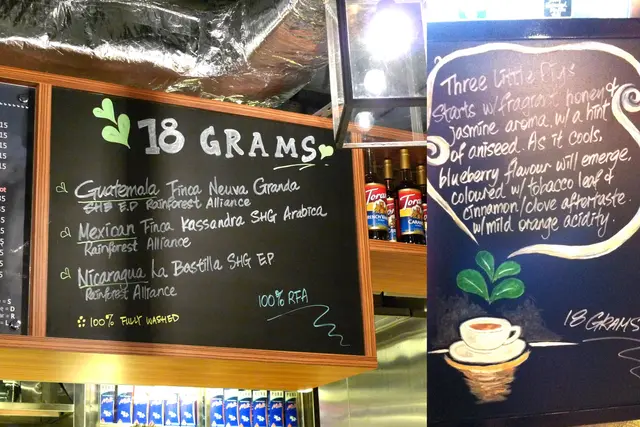 18 GRAMS
Guatemala Finca Neuva Granda
SHB E.P Rainforest Alliance
Mexican Finca Kassandra SHG Arabica
Rainforest Alliance
Nicaragua La Bastilla SHG EP
Rainforest Alliance
100% RFA
100% FULLY WASHED
Torani
Torani
Three Little Pigs
Starts w/fragrant honey &
jasmine aroma, w/a hint
of aniseed. As it cools,
blueberry flavour will emerge,
coloured w/ tobacco leaf &
cinnamon/clove aftertaste
w/mild orange acidity.
18 GRAMS